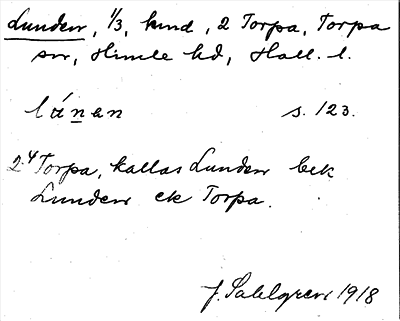 Lunden, 1/3, kmd, 2 Torpa, Torpa
sn, Himle hd, Hall. l.
lánen s. 123.
2:4 Torpa, kallas Lunden bek
Lunden ek Torpa.
J. Sahlgren 1918